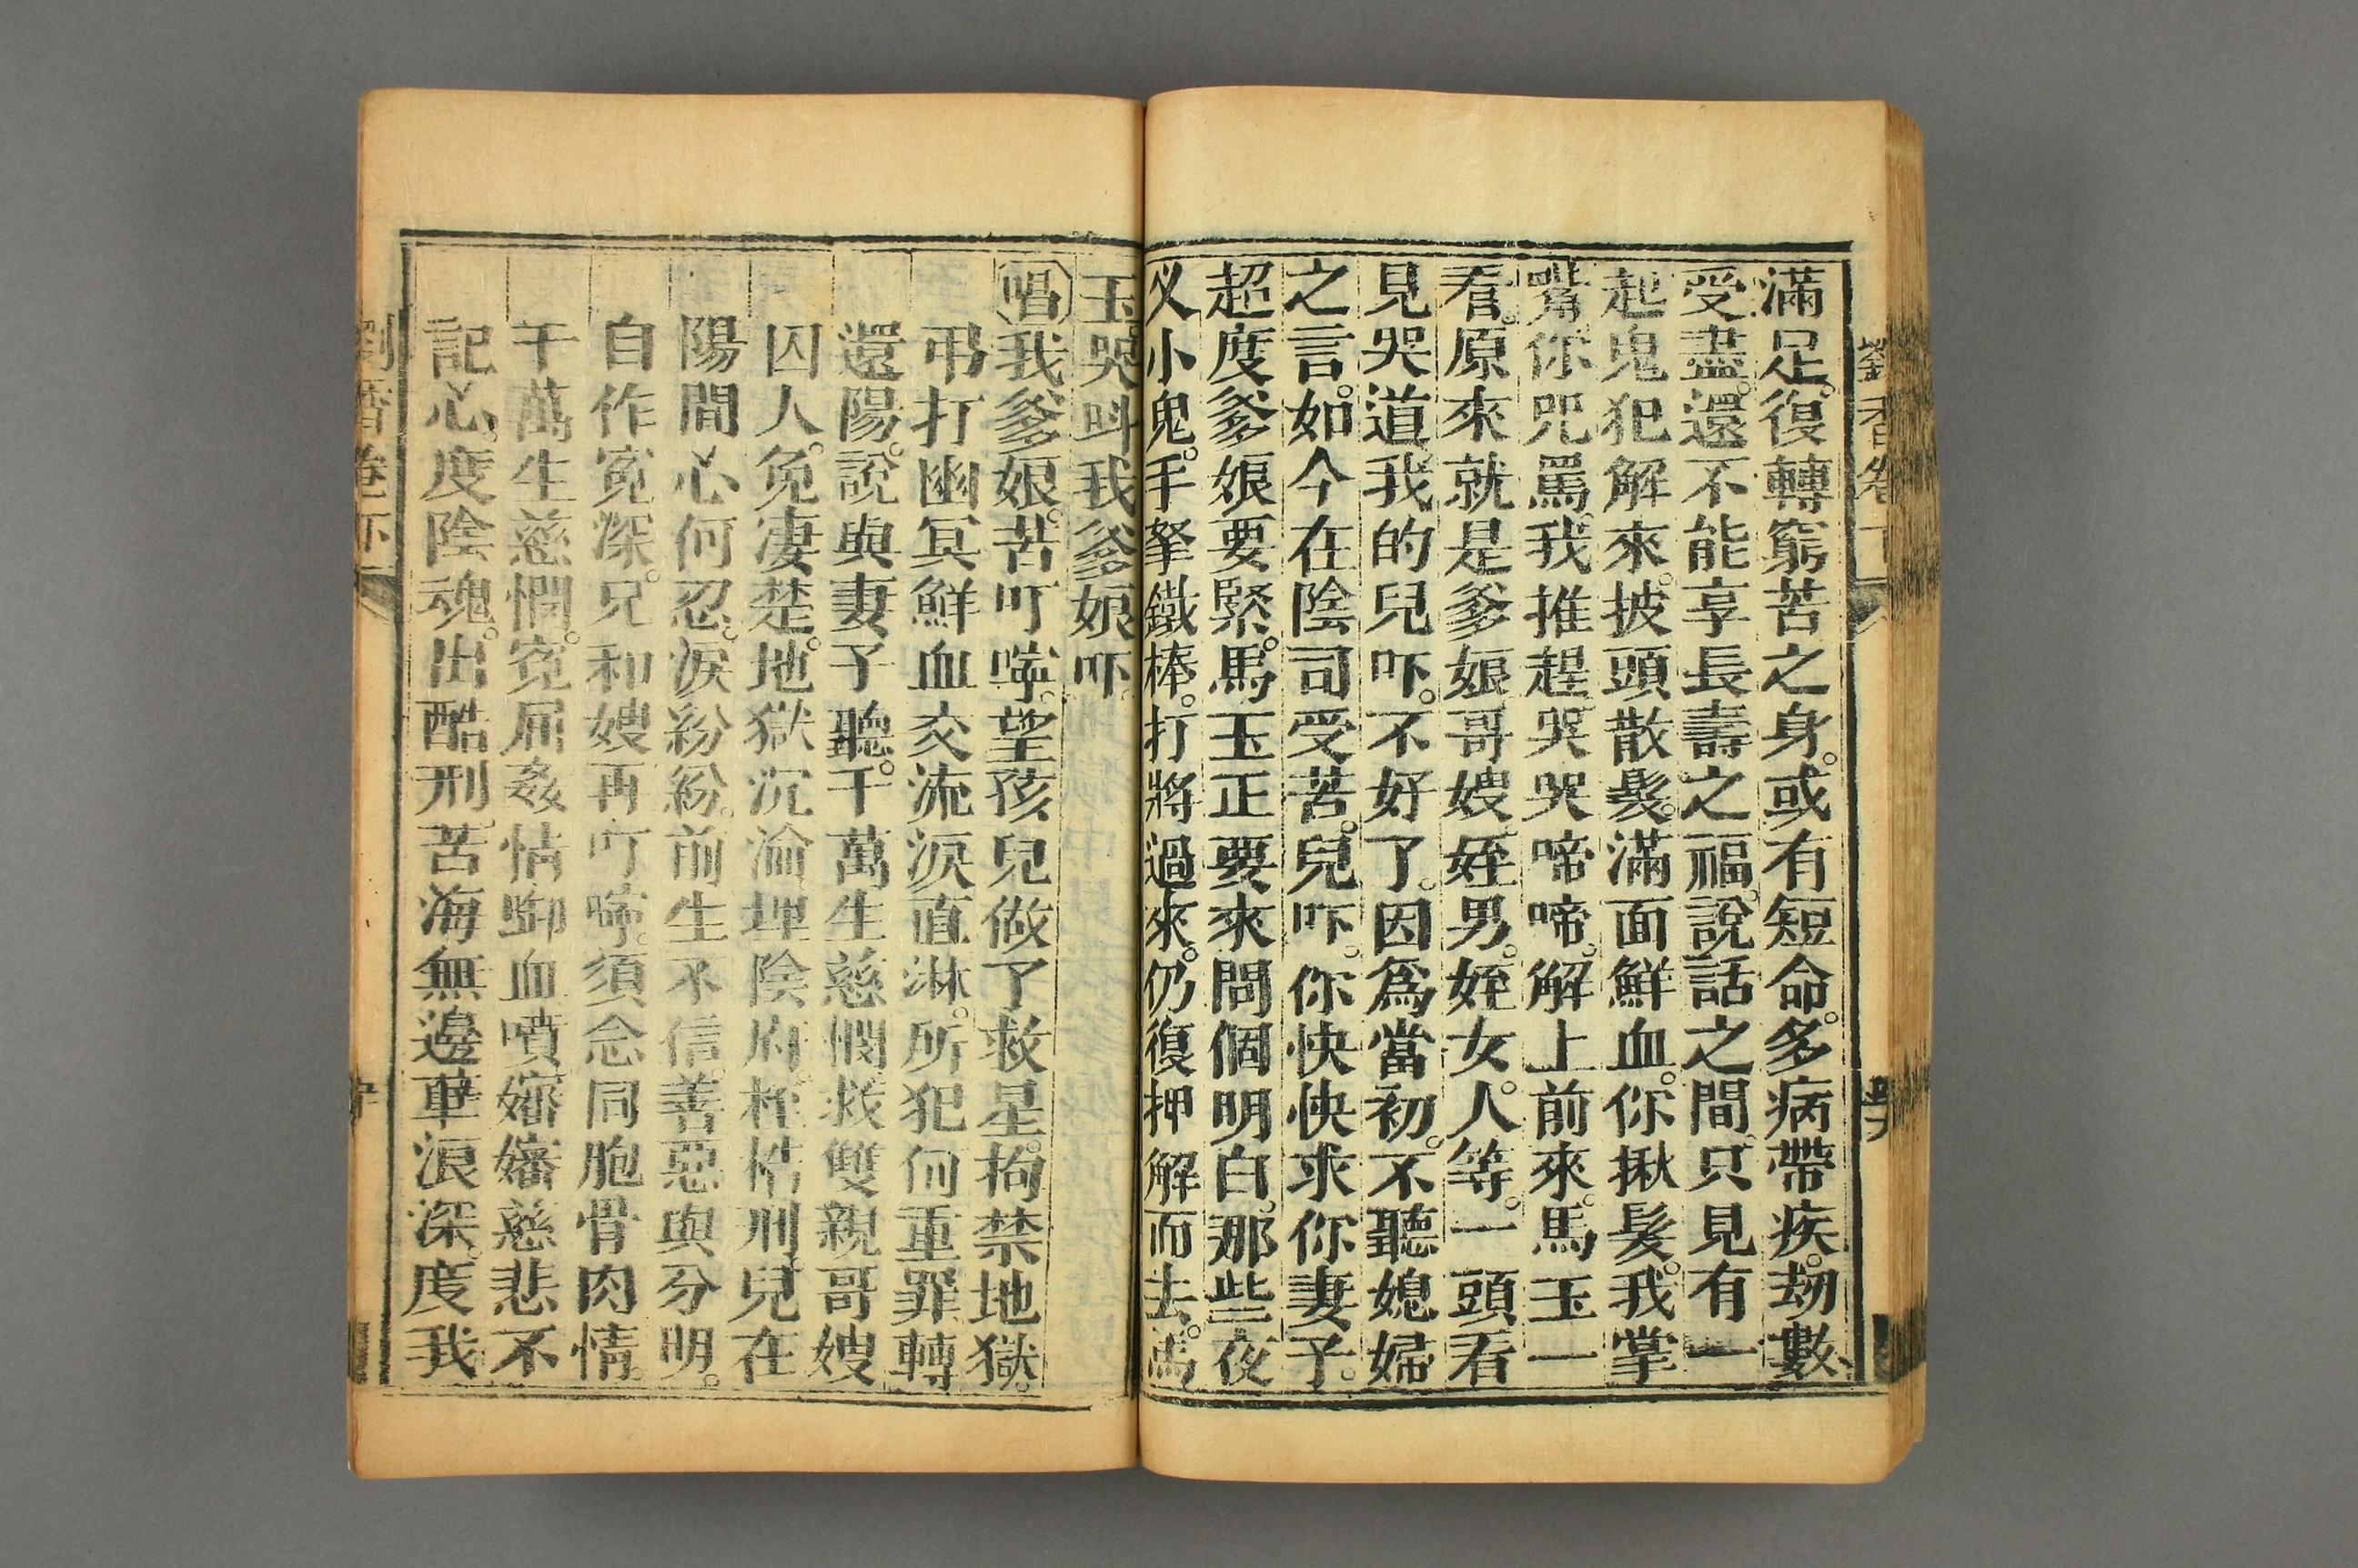 滿足。復轉窮苦之身。或有短命。多病帶疾。刼數
受盡。還不能享長壽之福。說話之間。只見有一
起鬼犯解來。披頭散髮。滿面鮮血。你揪髮。我掌
嘴。你咒罵。我推趕。哭哭啼啼。解上前來。馬玉一
看。原來就是爹娘哥嫂姪男。姪女。人等。一頭看
見哭道。我的兒吓。不好了。因爲當初。不聽媳婦
之言。如今在陰司受苦。兒吓。你快快求你妻子。
超度爹娘要緊。馬玉正要來問個明白。那些夜
乂小鬼。手拏鐵棒。打將過來。仍復押解而去。馬
玉哭呌我爹娘吓。
唱我爹娘。苦叮嚀。望孩兒做了救星。拘禁地獄。
弔打幽冥鮮血交流淚直淋。所犯何重罪轉
還陽。說與妻子聽。千萬生慈憫救雙親哥嫂
囚人。免凄楚。地獄沉淪埋陰府。枉梏刑。兒在
陽間心何忍。淚紛紛。前生不信。善惡與分明。
自作寃深。兄和嫂再叮嚀。須念同胞骨肉情。
千萬生慈憫。寃屈姦情啣血噴嬸嬸慈悲不
記心。度陰魂。出酷刑。苦海無邊華浪深。度我
劉香卷下
劉香卷下